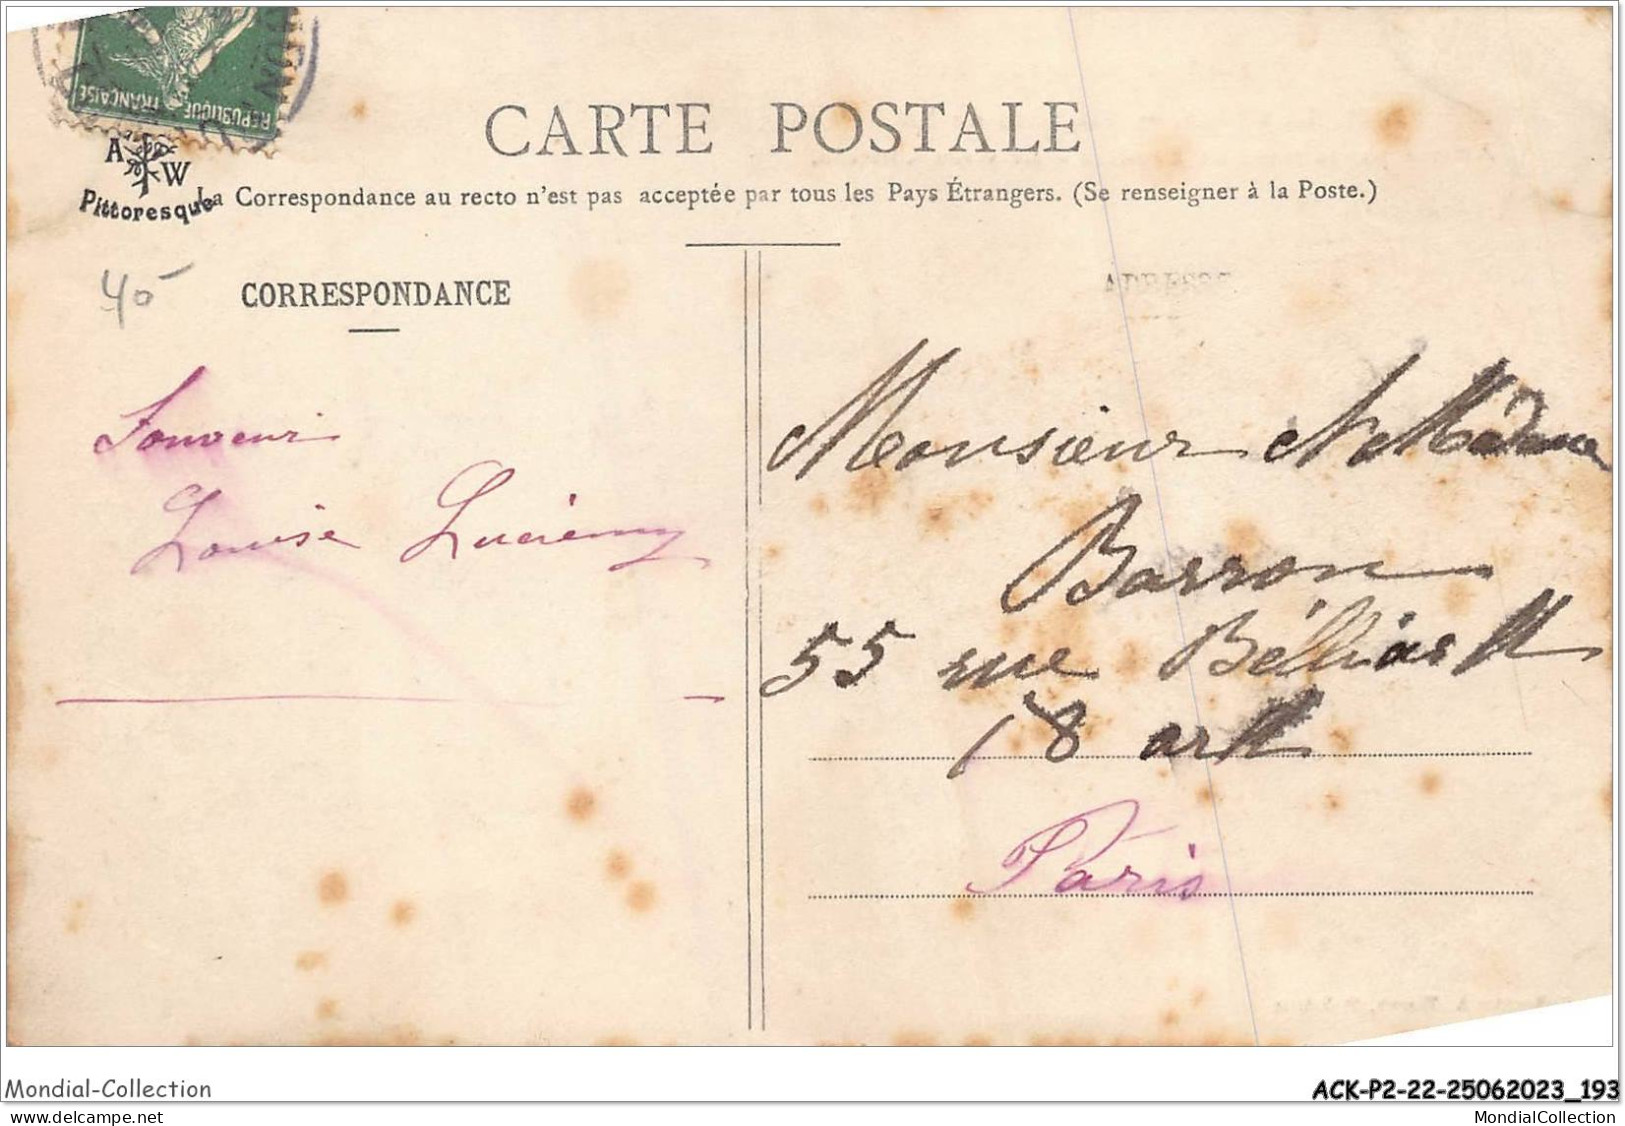 REPUBLIQUE FRANÇAISE
A W
Pittoresque
CARTE POSTALE
La Correspondance au recto n'est pas acceptée par tous les Pays Étrangers. (Se renseigner à la Poste.)
40
CORRESPONDANCE
ADRESSE
Souvenir
Louise
Monsieur et Madame
Barron
55 rue Bélliard
18 art
Paris
Mondial-Collection
ACK-P2-22-25062023_193
delcampe.net
MondialCollection